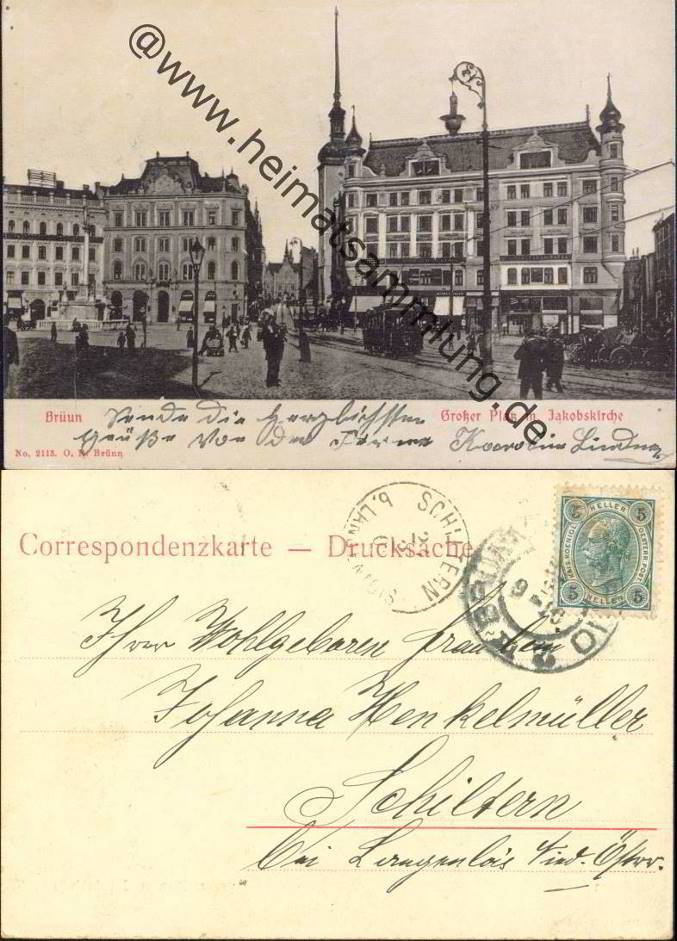 @www.heimatsammlung.de
Brüun Großer Platz m. Jakobskirche
Sende die herzlichsten
Grüße von der Firma Karoline Lindner
No. 2113. O. K. Brünn
Correspondenzkarte — Drucksache
SCHILTERN b. LANGENLOIS
5 HELLER 5
5 HELLER 5
Ihrer Wohlgeboren Fraulein
Johanna Henkelmüller
Schiltern
bei Langenlois Nied. Östrr.